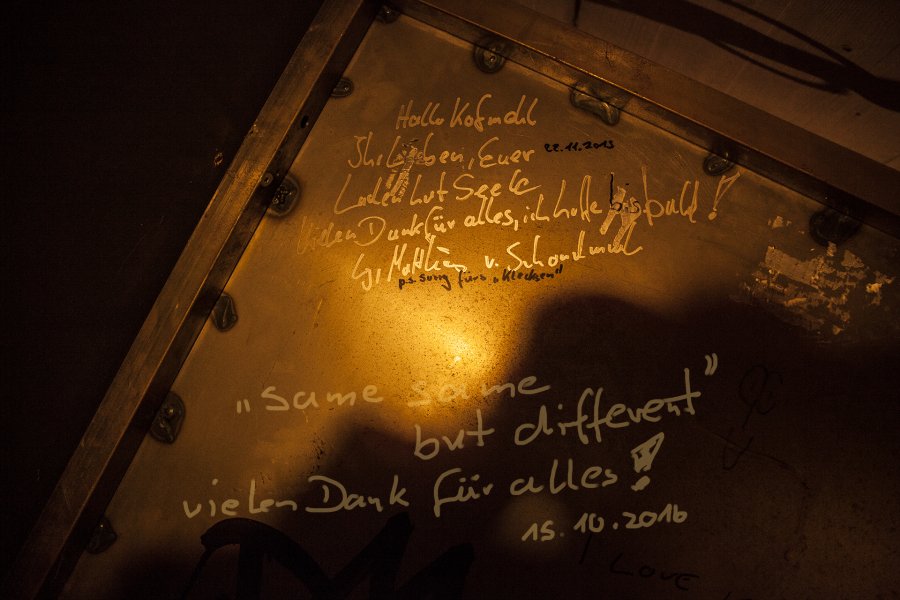 Hallo Kofmehl
Ihr Lieben, Euer 22.11.2013
Laden hat Seele
Vielen Dank für alles, ich hoffe bis bald!
v.
p.s. sorry fürs „Klecksen"
„same same
but different"
vielen Dank für alles!
15.10.2016
LOVE